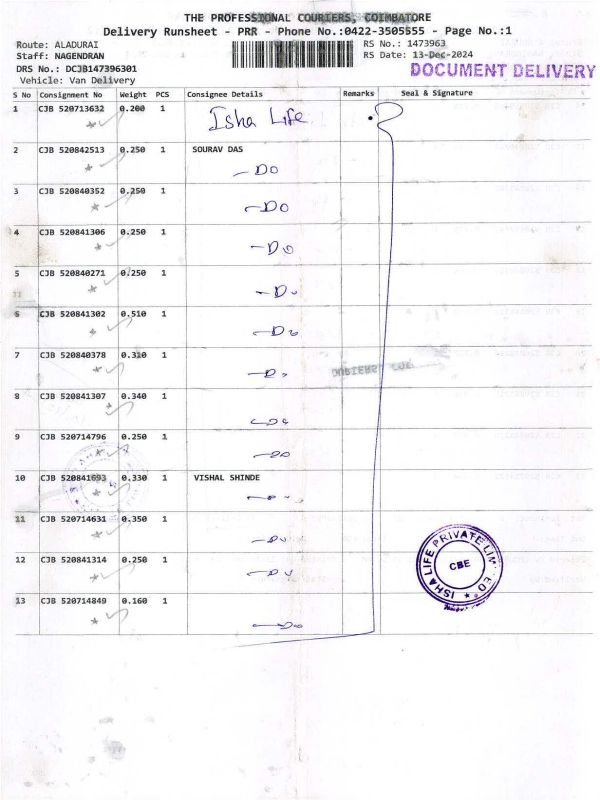 THE PROFESSIONAL COURIERS, COIMBATORE
Delivery Runsheet - PRR - Phone No.:0422-3505555 - Page No.:1
Route: ALADURAI
Staff: NAGENDRAN
DRS No.: DCJB147396301
Vehicle: Van Delivery
RS No.: 1473963
RS Date: 13-Dec-2024
DOCUMENT DELIVERY
S No Consignment No Weight PCS Consignee Details Remarks Seal & Signature
1 CJB 520713632 0.200 1 Isha Life
2 CJB 520842513 0.250 1 SOURAV DAS
- Do
3 CJB 520840352 0.250 1
- Do
4 CJB 520841306 0.250 1
- Do
5 CJB 520840271 0.250 1
- Do
6 CJB 520841302 0.510 1
- Do
7 CJB 520840378 0.320 1
- Do
8 CJB 520841307 0.340 1
- Do
9 CJB 520714796 0.250 1
- Do
10 CJB 520841693 0.330 1 VISHAL SHINDE
- Do
11 CJB 520714631 0.350 1
- Do
12 CJB 520841314 0.250 1
- Do
13 CJB 520714849 0.160 1
- Do
ISHA LIFE PRIVATE LIMITED
CBE